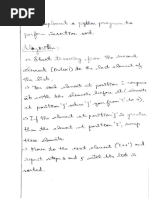 implement a python program to
perform insertion sort.
Algorithm:
→ Start iterating from the second
element (index 1) to the last element of
the list.
→ For each element at position
it with the elements before
at position 'j' where 'j'
→ If the element at position 'j'
than the element at position
these elements.
→ Move to the next element (i+1) and
repeat steps 2 and 3 until the list is
sorted.